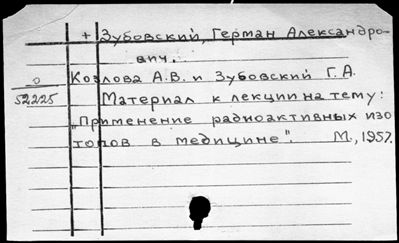 + Зубовский, Герман Александро-
вич.
О Козлова А.В. и Зубовский Г.А.
52225 Материал к лекции на тему:
"Применение радиоактивных изо
топов в медицине". М., 1957.